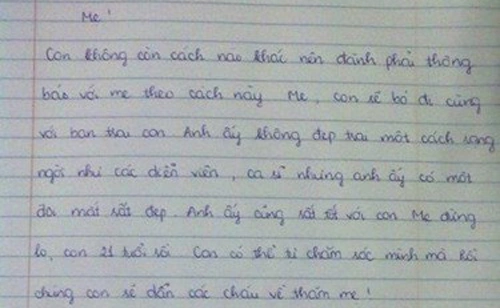 Mẹ!
Con không còn cách nào khác nên đành phải thông
báo với mẹ theo cách này. Mẹ, con sẽ bỏ đi cùng
với bạn trai con. Anh ấy không đẹp trai một cách sáng
ngời như các diễn viên, ca sĩ nhưng anh ấy có một
đôi mắt rất đẹp. Anh ấy cũng rất tốt với con. Mẹ đừng
lo, con 21 tuổi rồi. Con có thể tự chăm sóc mình mà. Rồi
chúng con sẽ dẫn các cháu về thăm mẹ!